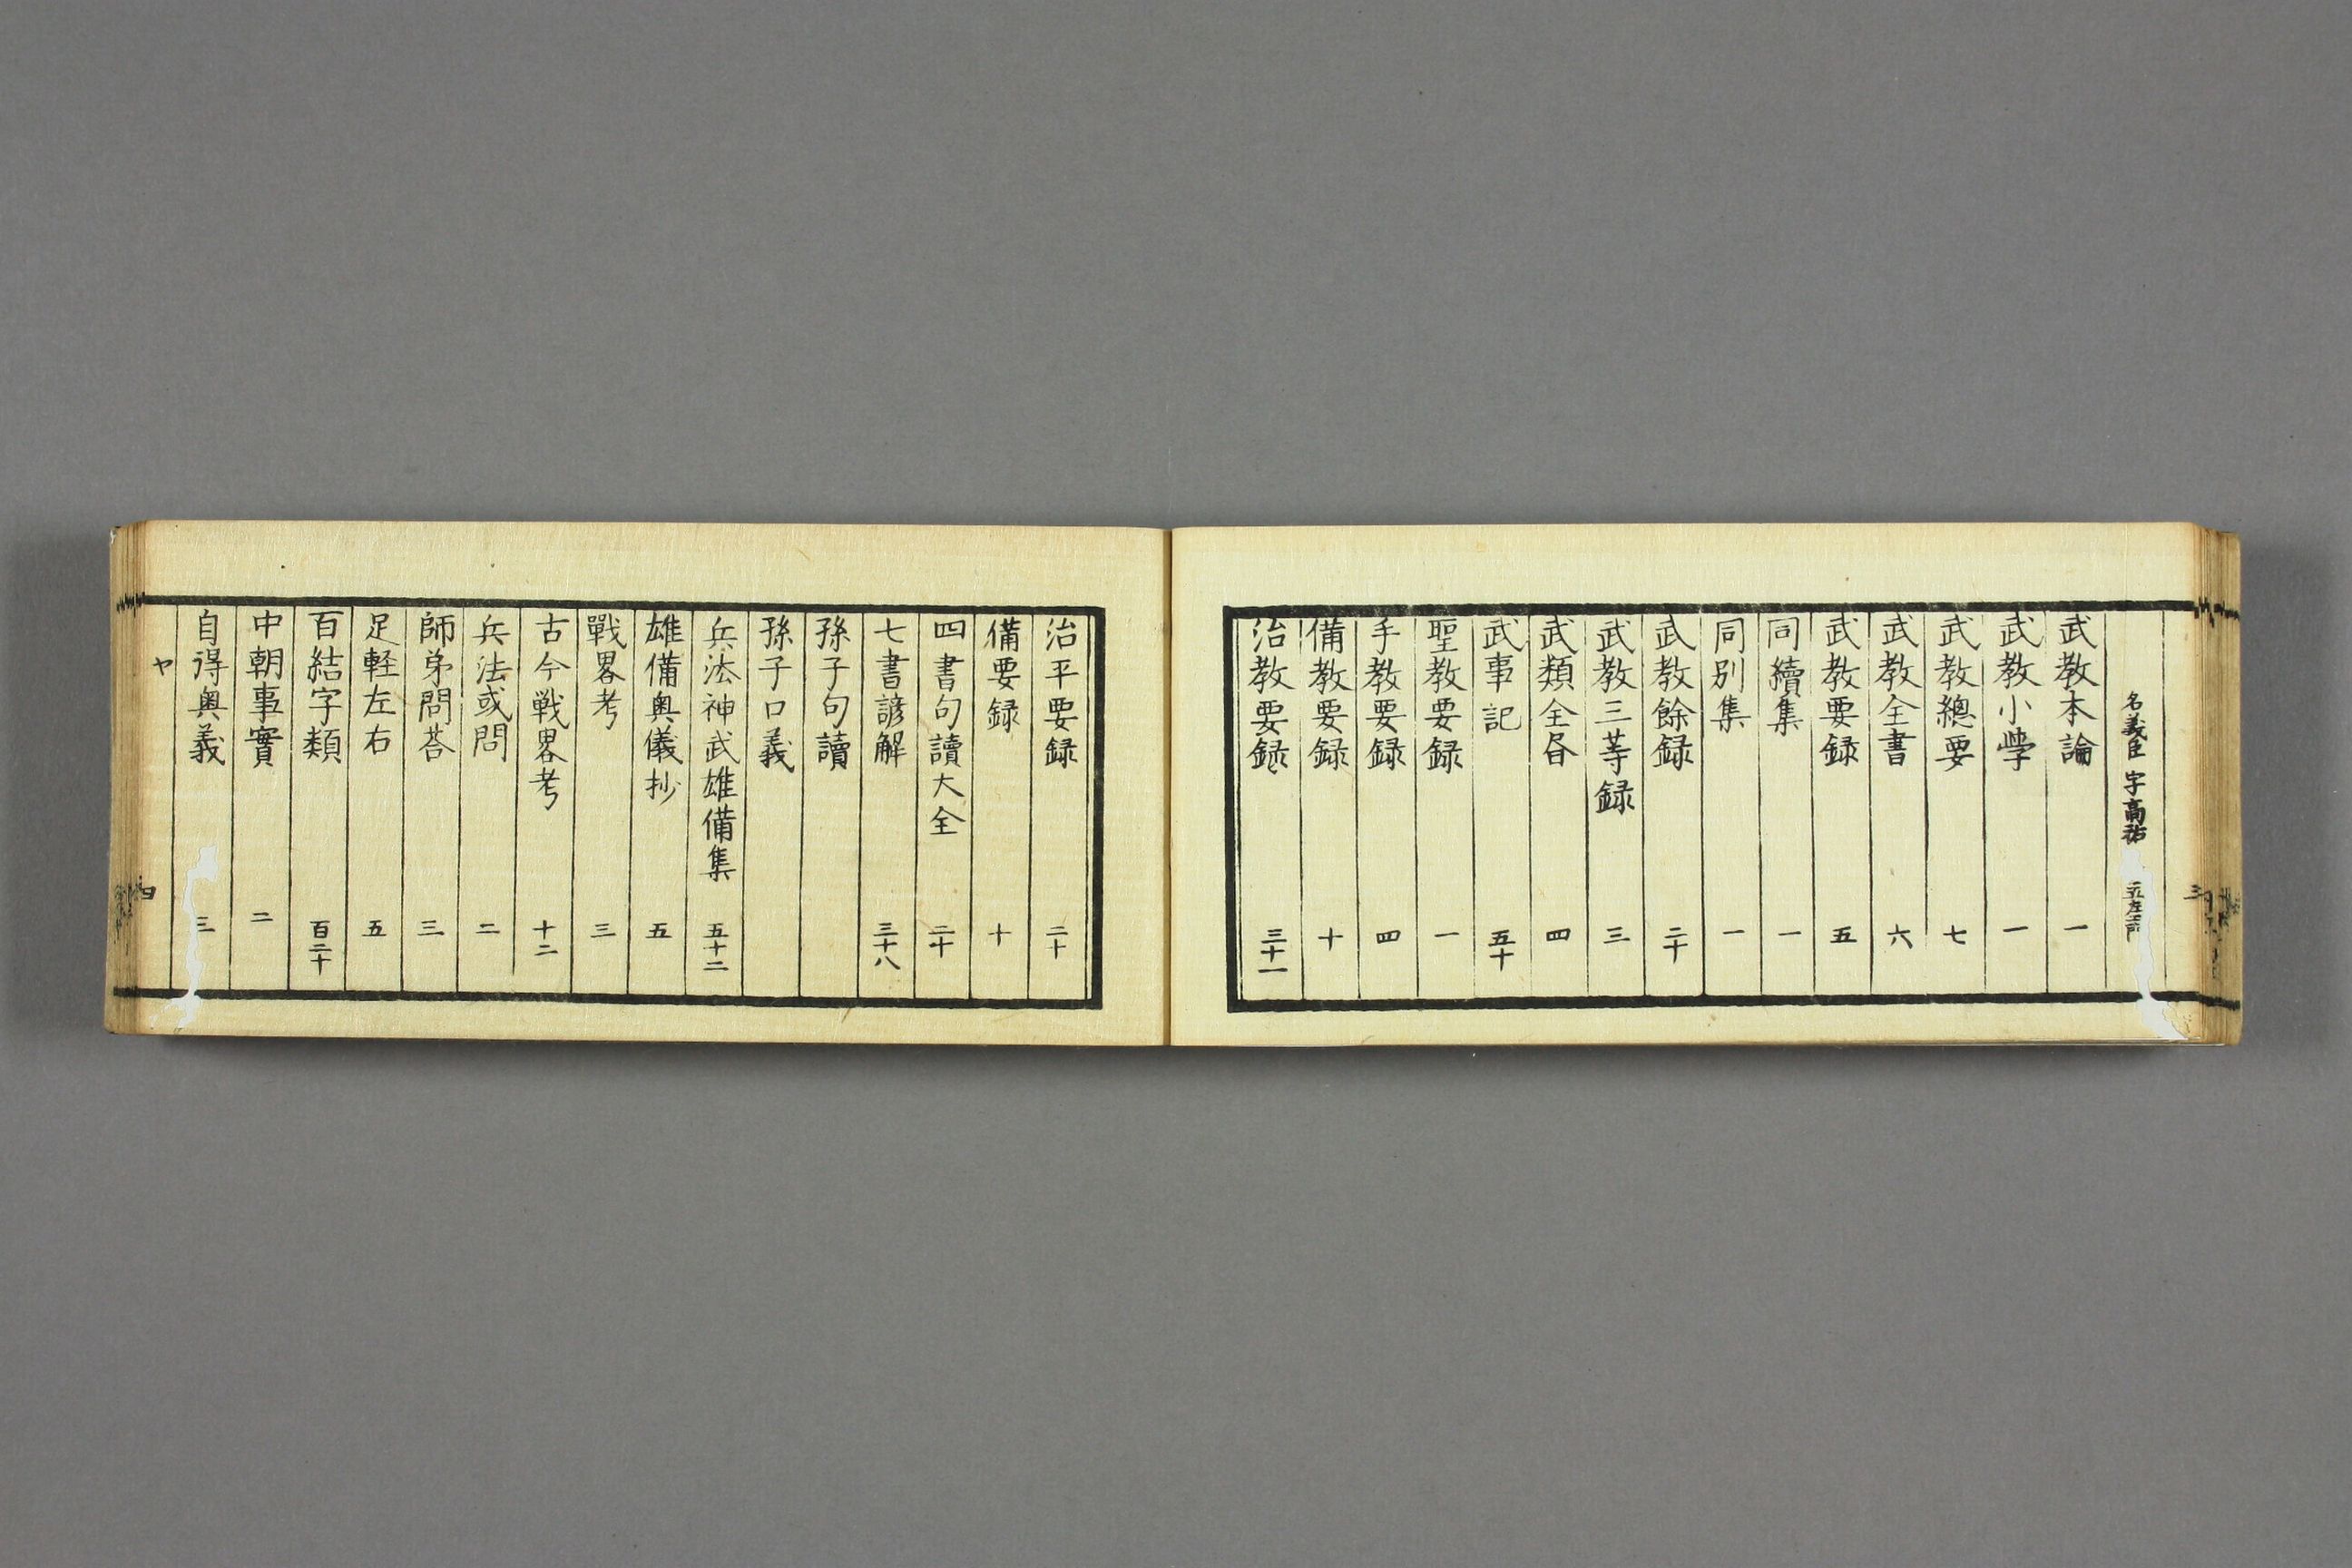 名義臣 字高祐
武教本論 一
武教小學 一
武教總要 七
武教全書 六
武教要録 五
同續集 一
同別集 一
武教餘録 二十
武教三等録 三
武類全昏 四
武事記 五十
聖教要録 一
手教要録 四
備教要録 十
治教要録 三十一
治平要録 二十
備要録 十
四書句讀大全 二十
七書諺解 三十八
孫子句讀
孫子口義
兵法神武雄備集 五十二
雄備奥儀抄 五
戰畧考 三
古今戦畧考 十二
兵法或問 二
師弟問荅 三
足軽左右 五
百結字類 百二十
中朝事實 二
自得奥義 三
ヤ 四